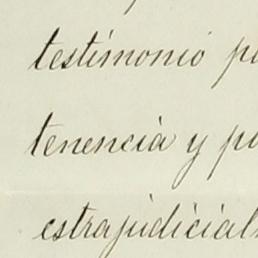 testimonio p
tenencia y po
estrajudicial